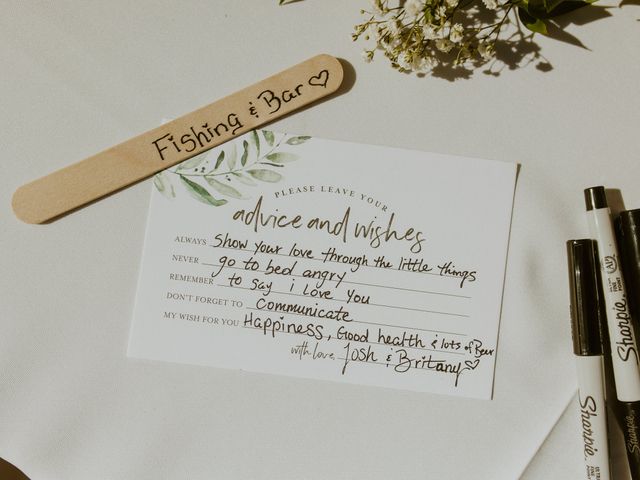 Fishing & Bar ♡
PLEASE LEAVE YOUR
advice and wishes
ALWAYS Show your love through the little things
NEVER go to bed angry
REMEMBER to say i love you
DON'T FORGET TO Communicate
MY WISH FOR YOU Happiness, Good health & lots of Beer
with love, Josh & Britany ♡
Sharpie
Sharpie
Sharpie